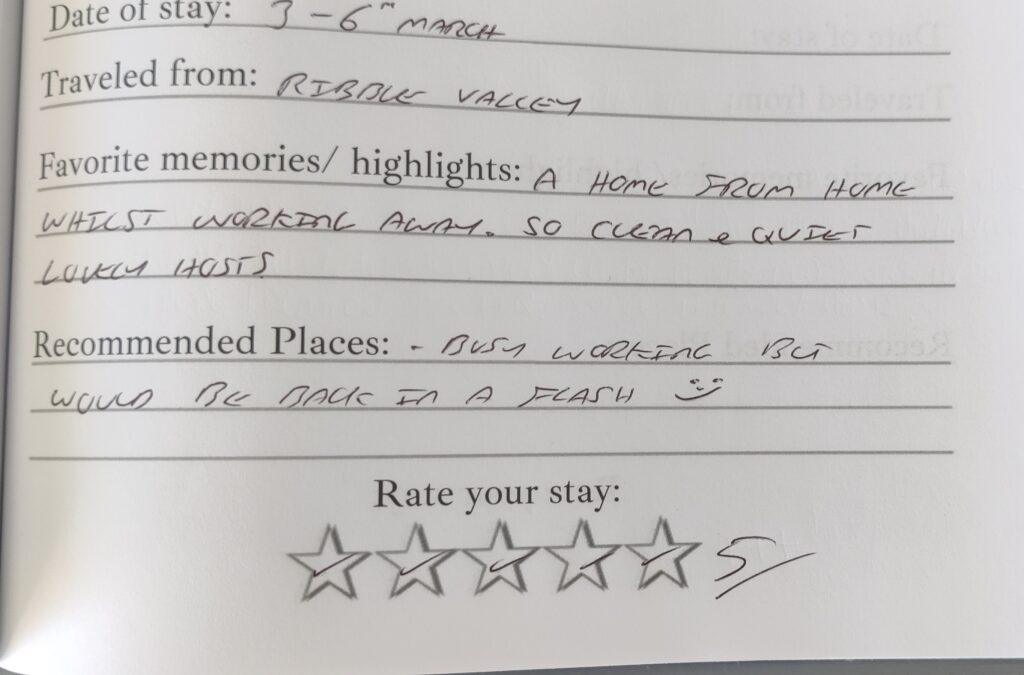 Date of stay: 3 - 6th MARCH
Traveled from: RIBBLE VALLEY
Favorite memories/ highlights: A HOME FROM HOME
WHILST WORKING AWAY. SO CLEAN & QUIET
LOVELY HOSTS
Recommended Places: - BUSY WORKING BUT
WOULD BE BACK IN A FLASH
Rate your stay:
5